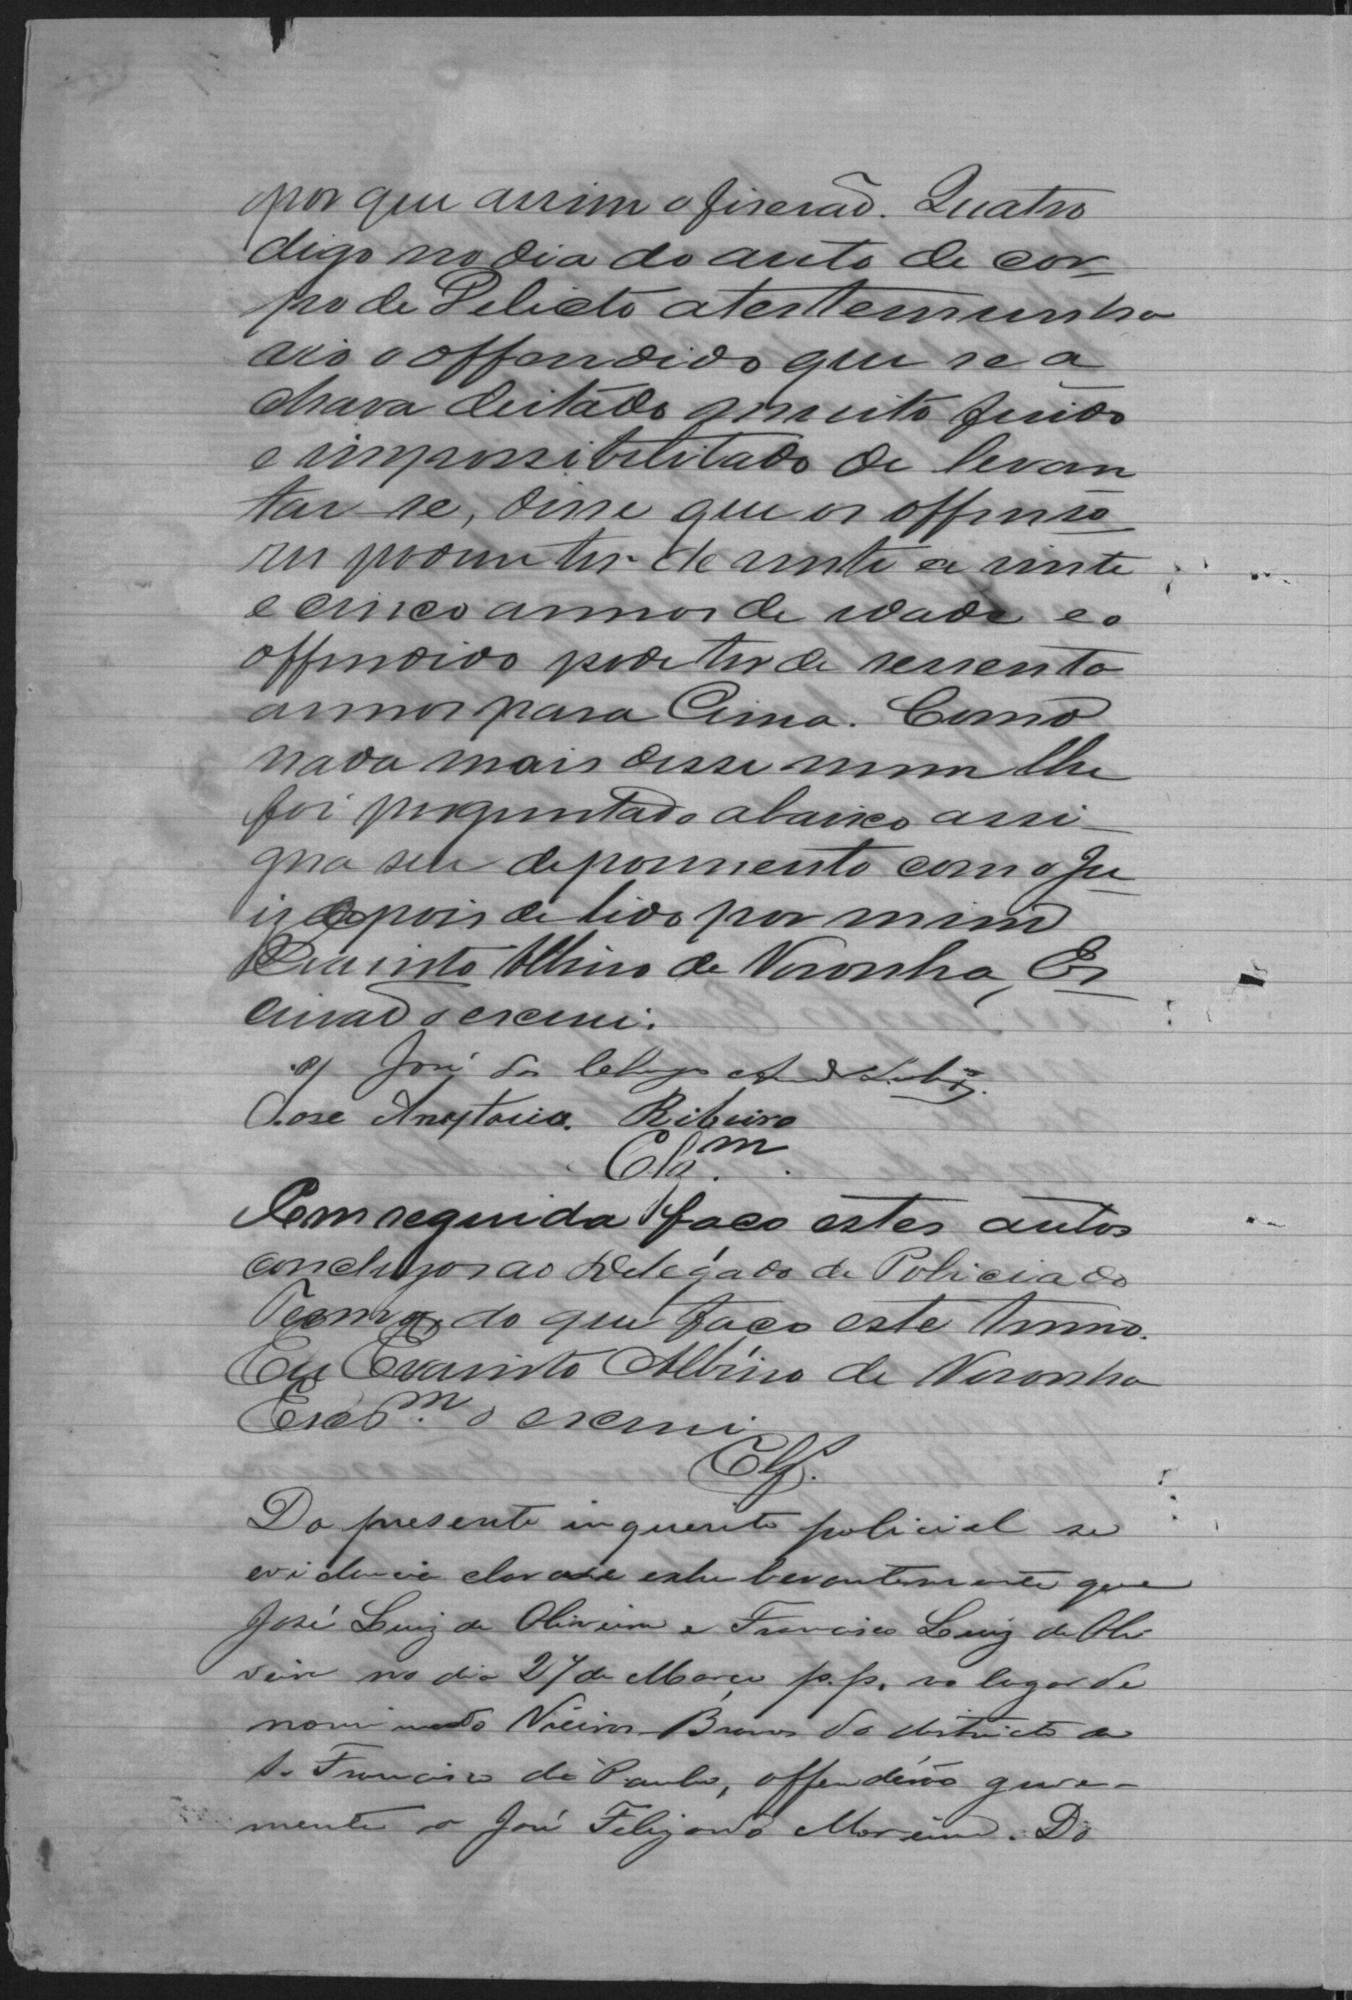 por que assim o fiserão. Quatro
digo no dia do auto de cor-
po de Delicto a testemunha
vio o offendido que se a
chava deitado muito firido
e impossibilitado de levan
tar-se, disse que os offenso
res podem ter de vinte a vinte
e cinco annos de idade e o
offendido pode ter de sessenta
annos para Cima. Como
nada mais disse nem lhe
foi perguntado abaixo assi-
gna seu depoimento com o Ju
iz depois de lido por mim
Evaristo Albino de Noronha, Es
crivão o escrevi.
José
José Anastacio Ribeiro
Clam.
Em seguida faço estes autos
conclusos ao Delégado de Policia do
Termo, do que faço este termo.
Eu Evaristo Albino de Noronha
Escram. o escrevi
Cls.
Do presente inquerito policial se
evidencia clara e exhuberantemente que
José Luiz de Oliveira e Francisco Luiz de Oli
veira no dia 27 de Março p.p. no lugar de
nominado Vieiras Bravas do districto de
S. Francisco de Paula, offenderão grave-
mente a José Felizardo Moreira. Do